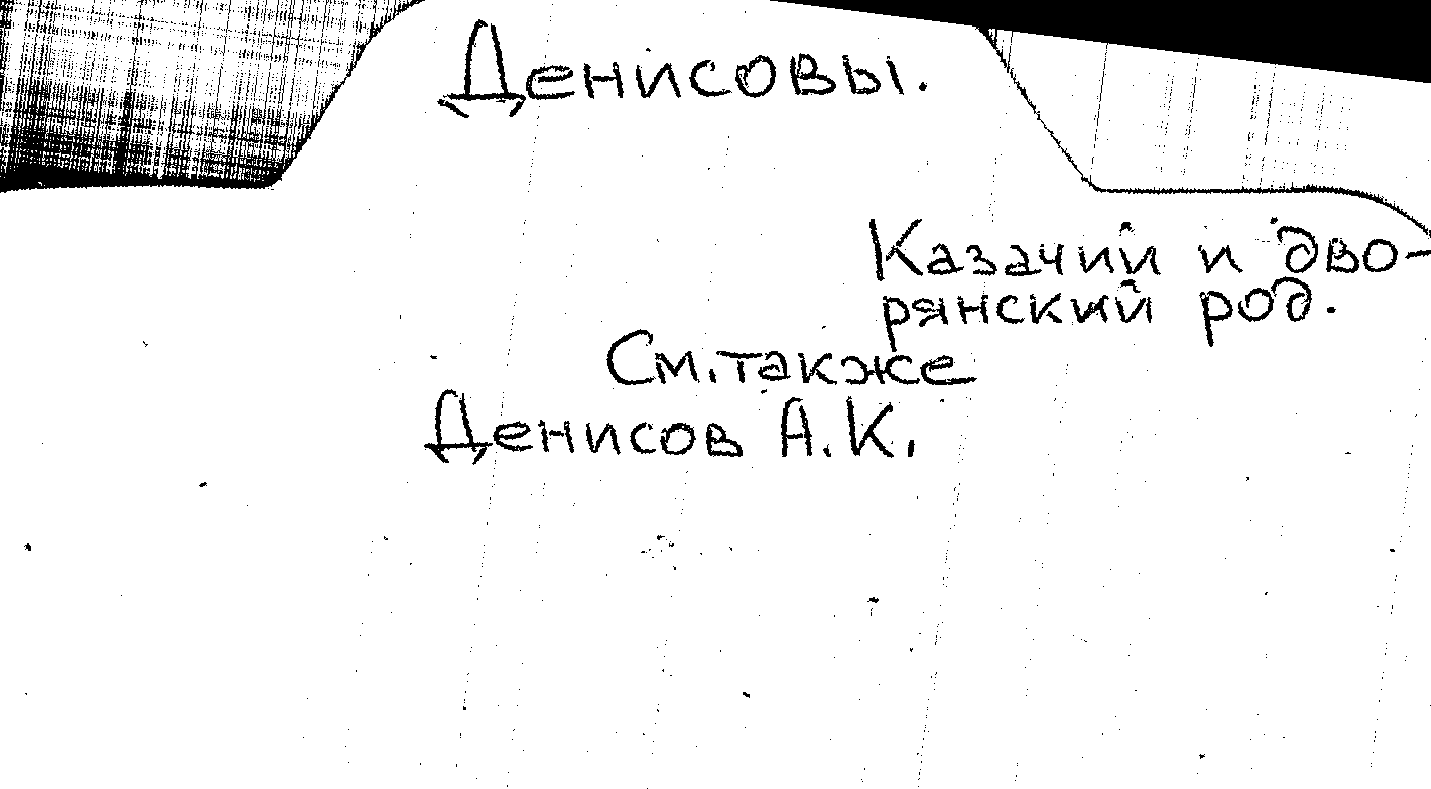 Денисовы.
Казачий и дво-
рянский род.
См. также
Денисов А.К.